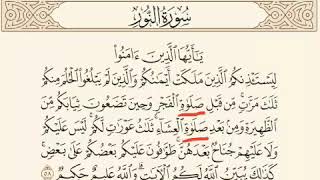 سُورَةُ النُّورِ
يَٰٓأَيُّهَا ٱلَّذِينَ ءَامَنُوا۟
لِيَسْتَـْٔذِنكُمُ ٱلَّذِينَ مَلَكَتْ أَيْمَٰنُكُمْ وَٱلَّذِينَ لَمْ يَبْلُغُوا۟ ٱلْحُلُمَ مِنكُمْ
ثَلَٰثَ مَرَّٰتٍ ۚ مِّن قَبْلِ صَلَوٰةِ ٱلْفَجْرِ وَحِينَ تَضَعُونَ ثِيَابَكُم مِّنَ
ٱلظَّهِيرَةِ وَمِنۢ بَعْدِ صَلَوٰةِ ٱلْعِشَآءِ ۚ ثَلَٰثُ عَوْرَٰتٍ لَّكُمْ ۚ لَيْسَ عَلَيْكُمْ
وَلَا عَلَيْهِمْ جُنَاحٌۢ بَعْدَهُنَّ ۚ طَوَّٰفُونَ عَلَيْكُم بَعْضُكُمْ عَلَىٰ بَعْضٍ ۚ
كَذَٰلِكَ يُبَيِّنُ ٱللَّهُ لَكُمُ ٱلْءَايَٰتِ ۗ وَٱللَّهُ عَلِيمٌ حَكِيمٌ ٥٨